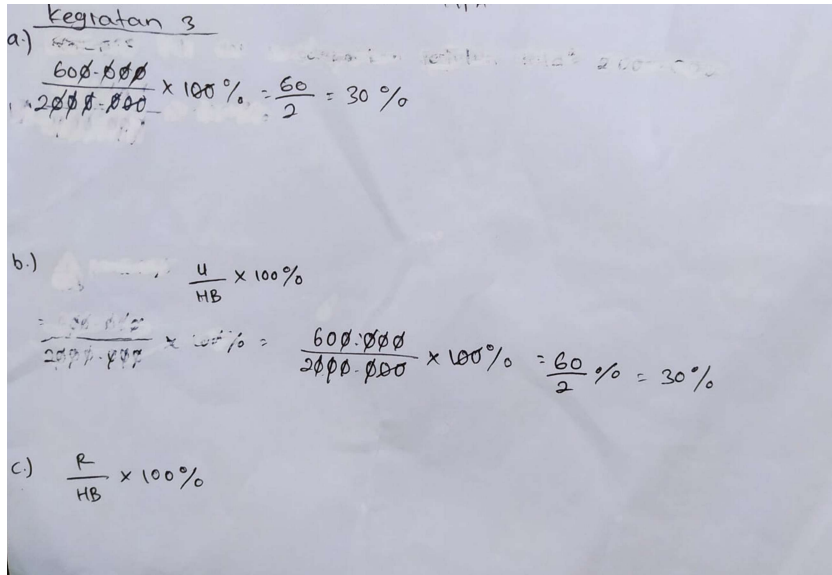 Kegiatan 3
a.)
600.000 / 2000.000 × 100% = 60/2 = 30%
b.) U/HB × 100%
2000.000 × 100% = 600.000 / 2000.000 × 100% = 60/2 % = 30%
c.) R/HB × 100%